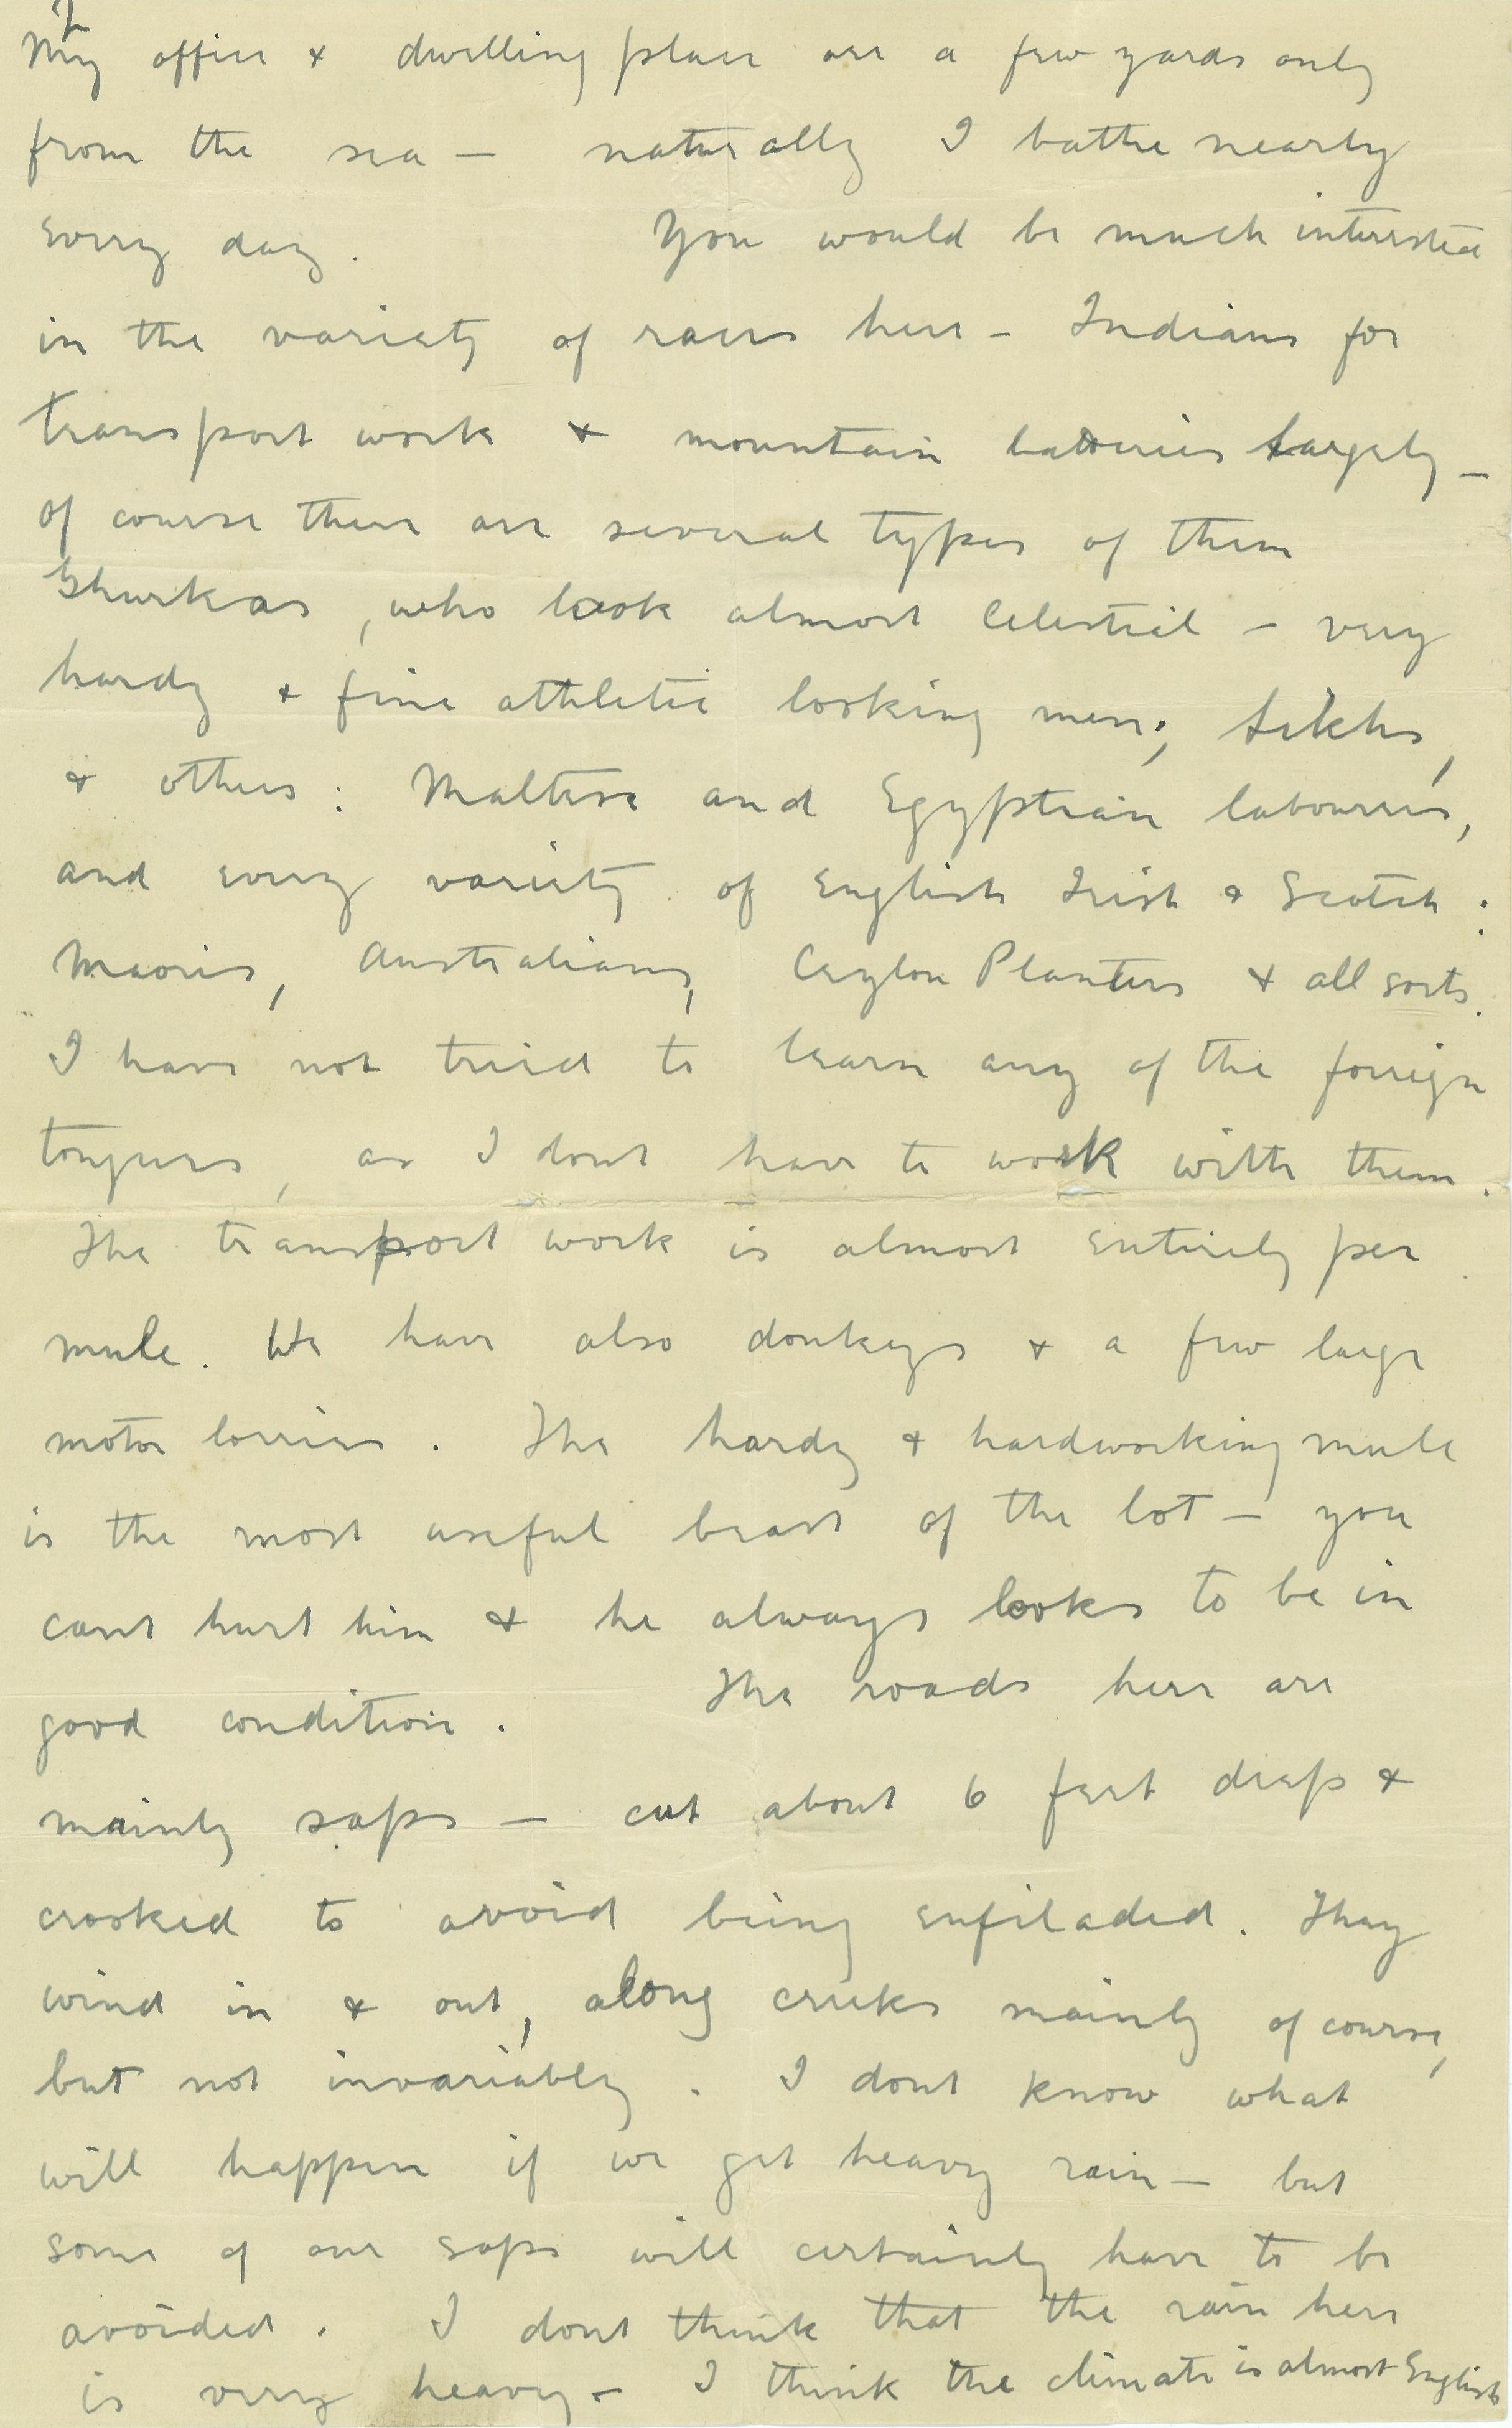 My office & dwelling place are a few yards only
from the sea – naturally I bathe nearly
every day. You would be much interested
in the variety of races here – Indians for
transport work & mountain batteries largely –
of course there are several types of them
Ghurkas, who look almost Celestial – very
hardy & fine athletic looking men; Sikhs,
& others: Maltese and Egyptian labourers,
and every variety of English Irish & Scotch:
Maoris, Australians, Ceylon Planters & all sorts.
I have not tried to learn any of the foreign
tongues, as I dont have to work with them.
The transport work is almost entirely per
mule. We have also donkeys & a few large
motor lorries. The hardy & hardworking mule
is the most useful beast of the lot – you
cant hurt him & he always looks to be in
good condition. The roads here are
mainly saps – cut about 6 feet deep &
crooked to avoid being enfiladed. They
wind in & out, along creeks mainly of course,
but not invariably. I dont know what
will happen if we get heavy rain – but
some of our saps will certainly have to be
avoided. I dont think that the rain here
is very heavy – I think the climate is almost English